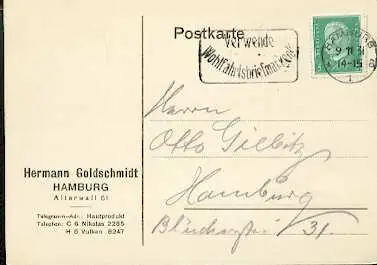 Postkarte
Verwende
Wohlfahrtsbriefmarken
HAMBURG
9 11 31
14-15
1
Herrn
Otto
Hamburg
Blücherstr. 31.
Hermann Goldschmidt
HAMBURG
Alterwall 61
Telegramm-Adr.: Hautprodukt
Telephon: C 6 Nikolas 2285
H 6 Vulkan 8247